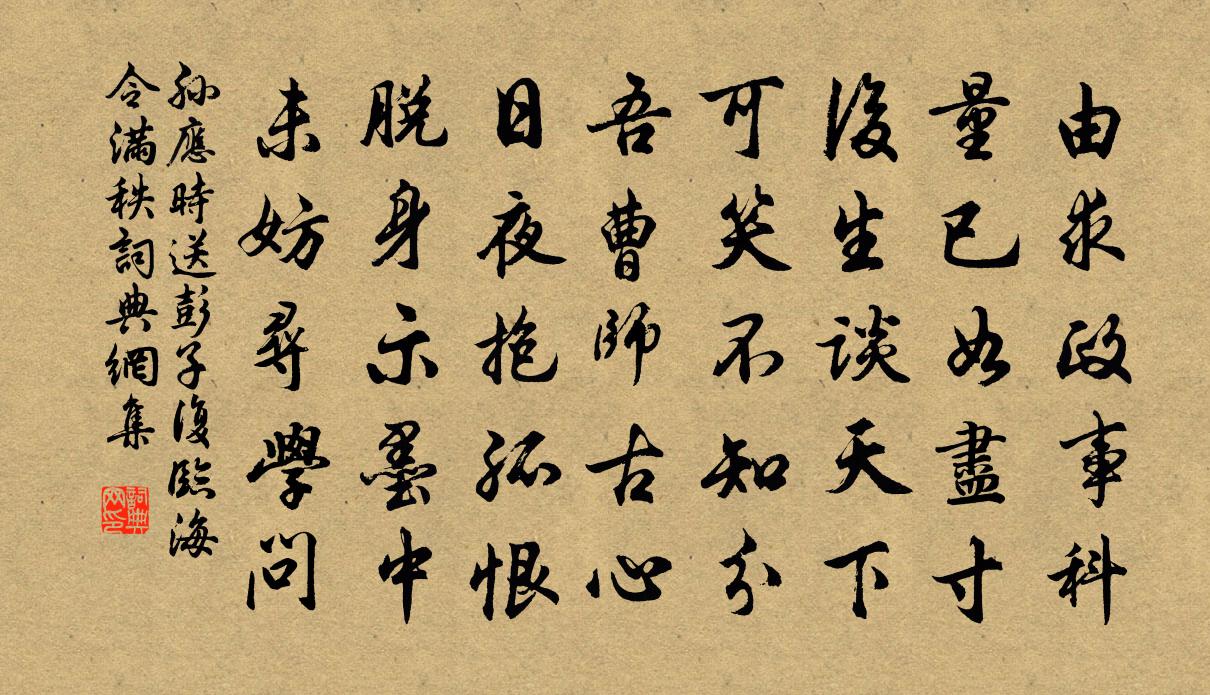 由求政事科
量已如盡寸
後生談天下
可笑不知分
吾曹師古心
日夜抱孤恨
脱身示墨中
未妨尋學問
孫應時送彭子復臨海
令滿秩詞典網集
詞典网印